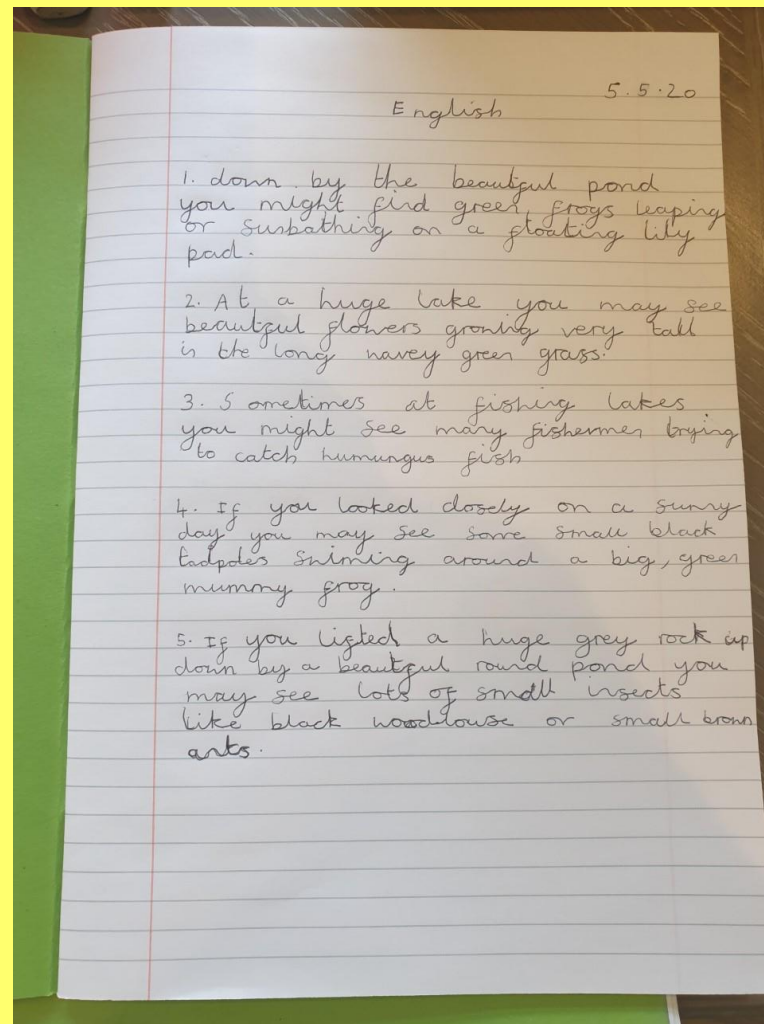 5.5.20
English
1. down by the beautiful pond
you might find green, frogs leaping
or sunbathing on a floating lily
pad.
2. At a huge lake you may see
beautiful flowers growing very tall
in the long wavey green grass.
3. Sometimes at fishing lakes
you might see many fishermen trying
to catch humungus fish
4. If you looked closely on a sunny
day you may see some small black
tadpoles swiming around a big, green
mummy frog.
5. If you lifted a huge grey rock up
down by a beautful round pond you
may see lots of small insects
like black woodlouse or small brown
ants.